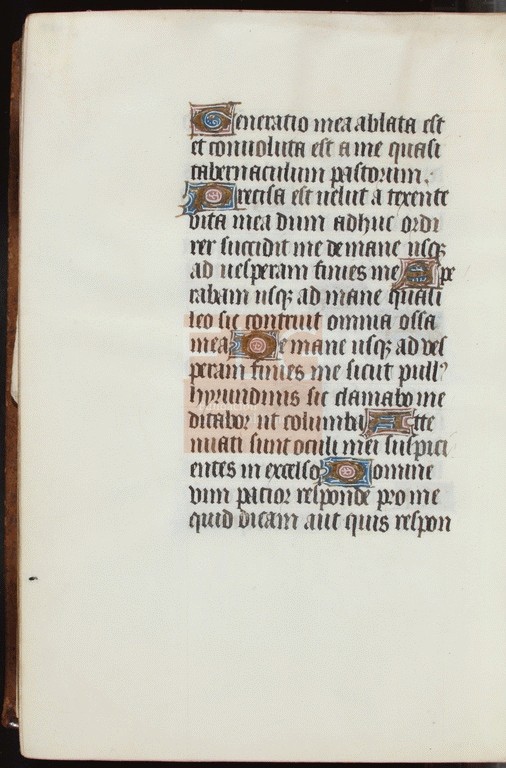 Generatio mea ablata est
et conuoluta est a me quasi
tabernaculum pastorum.
Precisa est uelut a texente
vita mea dum adhuc ordi
rer succidit me de mane usqꝫ
ad uesperam finies me Spe
rabam usqꝫ ad mane quasi
leo sic contriuit omnia ossa
mea De mane usqꝫ ad ves
peram finies me sicut pullꝰ
hyrundinis sic clamabo me
ditabor ut columba Atte
nuati sunt oculi mei suspici
entes in excelso Domine
vim patior responde pro me
quid dicam aut quis respon